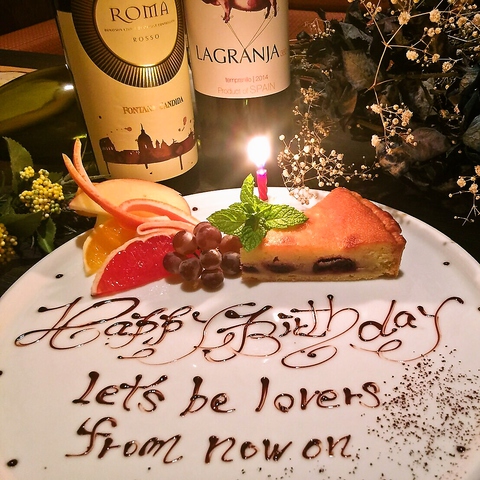 ROMA
ROSSO
FONTANA CANDIDA
LAGRANJA
tempranillo | 2014
Product of SPAIN
Happy Birthday
let's be lovers
from now on